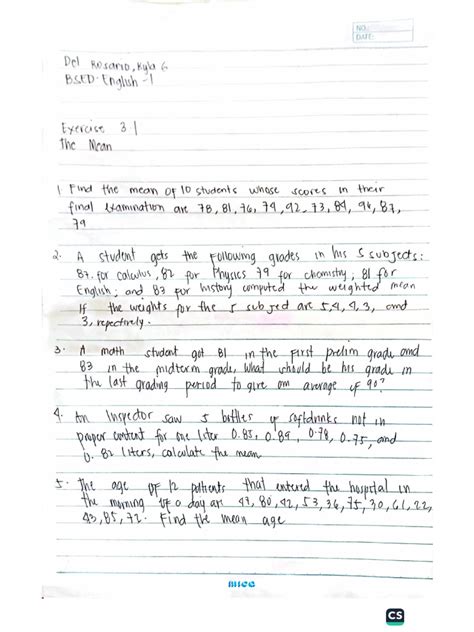 NO.
DATE
Del Rosario, Kyla G
BSED-English-1
Exercise 3.1
The Mean
1. Find the mean of 10 students whose scores in their
final examination are 78, 81, 76, 79, 92, 73, 89, 94, 87,
79
2. A student gets the following grades in his 5 subjects:
87 for calculus, 82 for Physics 79 for chemistry; 81 for
English; and 83 for history computed the weighted mean
If the weights for the 5 subject are 5, 4, 4, 3, and
3, repectively.
3. A math student got 81 in the first prelim grade and
83 in the midterm grade, What should be his grade in
the last grading period to give am average of 90?
4. An Inspector saw 5 bottles of softdrinks not in
proper content for one liter 0.85, 0.89, 0.78, 0.75, and
0.82 liters, calculate the mean
5. The age of 12 patients that entered the hospital in
the morning of a day are 47, 80, 42, 53, 36, 75, 30, 61, 22,
43, 85, 72. Find the mean age
CS